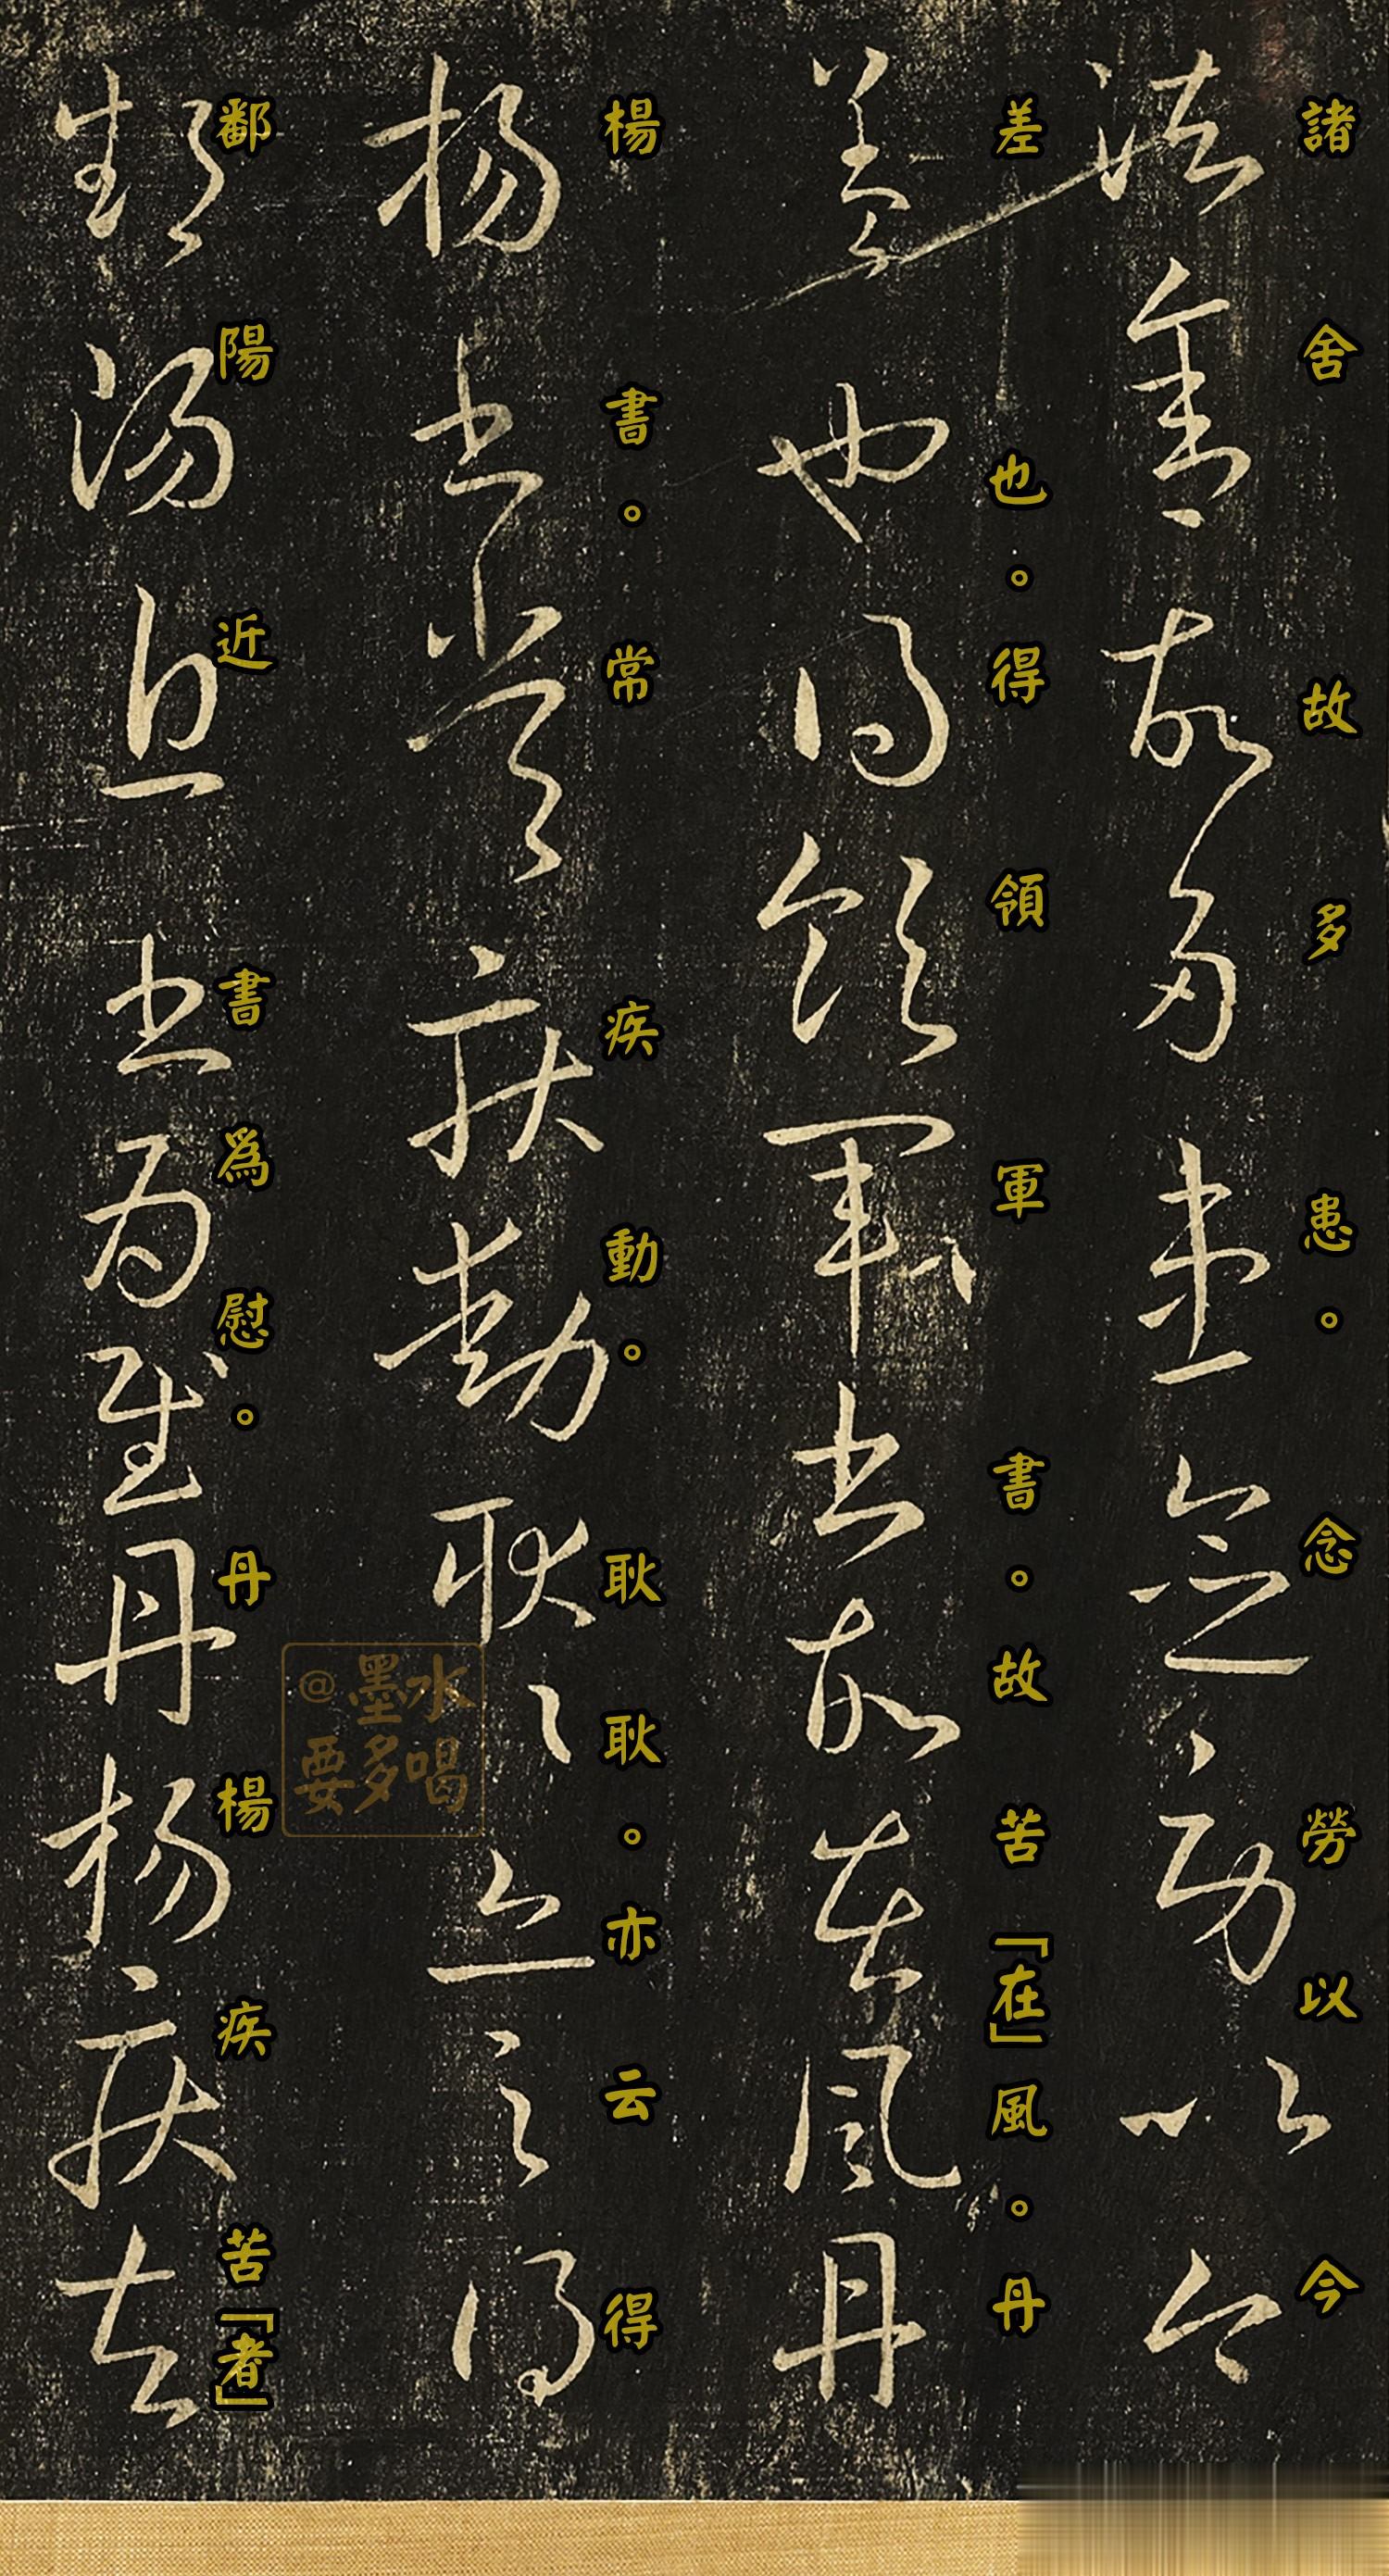 諸舍故多患。念勞以今
差也。得領軍書。故苦「在」風。丹
楊書。常疾動。耿耿。亦云得
鄱陽近書爲慰。丹楊疾苦「者」
@墨水
要多喝